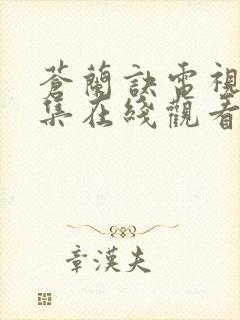 蒼蘭訣電視
集在綫觀看
章漢夫